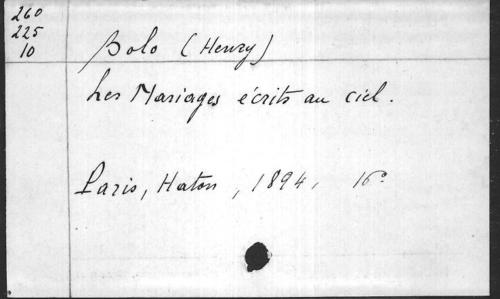 260
225
10
Bolo (Henry)
Les Mariages écrits au ciel.
Paris, Haton, 1894, 16°